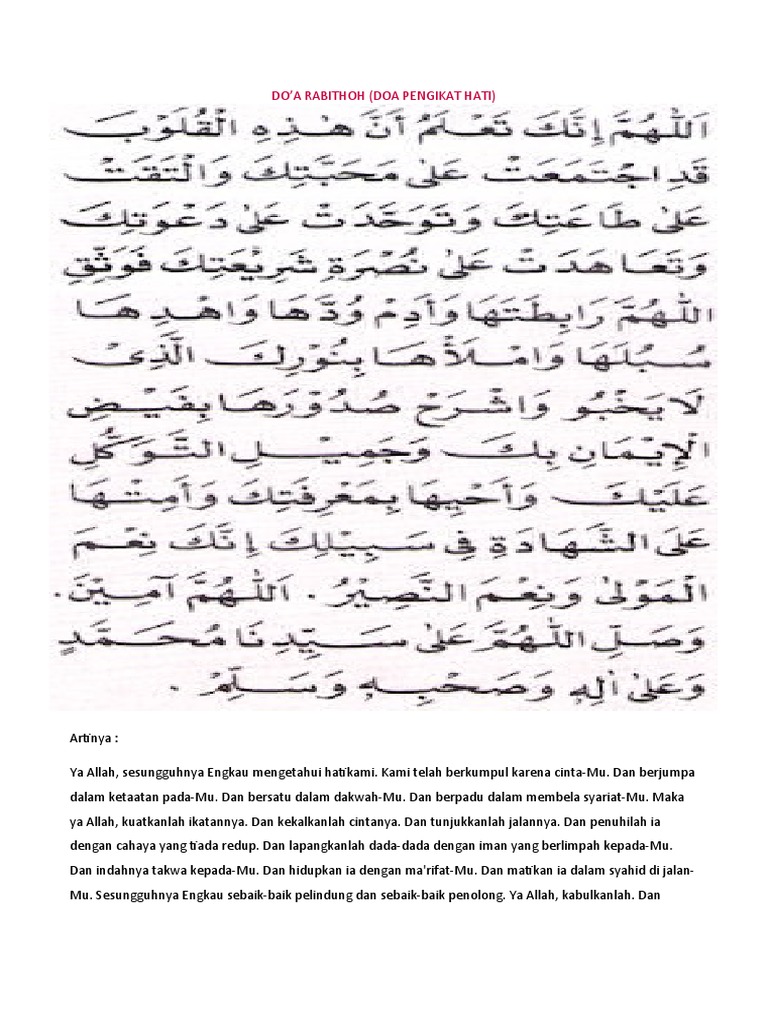 DO’A RABITHOH (DOA PENGIKAT HATI)
اَللّٰهُمَّ إِنَّكَ تَعْلَمُ أَنَّ هٰذِهِ الْقُلُوْبَ
قَدِ اجْتَمَعَتْ عَلٰى مَحَبَّتِكَ وَالْتَقَتْ
عَلٰى طَاعَتِكَ وَتَوَحَّدَتْ عَلٰى دَعْوَتِكَ
وَتَعَاهَدَتْ عَلٰى نُصْرَةِ شَرِيْعَتِكَ فَوَثِّقِ
اللّٰهُمَّ رَابِطَتَهَا وَأَدِمْ وُدَّهَا وَاهْدِهَا
سُبُلَهَا وَامْلَأْهَا بِنُوْرِكَ الَّذِىْ
لَا يَخْبُو وَاشْرَحْ صُدُوْرَهَا بِفَيْضِ
الْإِيْمَانِ بِكَ وَجَمِيْلِ التَّوَكُّلِ
عَلَيْكَ وَأَحْيِهَا بِمَعْرِفَتِكَ وَأَمِتْهَا
عَلَى الشَّهَادَةِ فِى سَبِيْلِكَ إِنَّكَ نِعْمَ
الْمَوْلٰى وَنِعْمَ النَّصِيْرُ. اَللّٰهُمَّ آمِيْنَ.
وَصَلِّ اللّٰهُمَّ عَلٰى سَيِّدِنَا مُحَمَّدٍ
وَعَلٰى اٰلِهٖ وَصَحْبِهٖ وَسَلِّمْ.
Artinya :
Ya Allah, sesungguhnya Engkau mengetahui hatikami. Kami telah berkumpul karena cinta-Mu. Dan berjumpa
dalam ketaatan pada-Mu. Dan bersatu dalam dakwah-Mu. Dan berpadu dalam membela syariat-Mu. Maka
ya Allah, kuatkanlah ikatannya. Dan kekalkanlah cintanya. Dan tunjukkanlah jalannya. Dan penuhilah ia
dengan cahaya yang tiada redup. Dan lapangkanlah dada-dada dengan iman yang berlimpah kepada-Mu.
Dan indahnya takwa kepada-Mu. Dan hidupkan ia dengan ma'rifat-Mu. Dan matikan ia dalam syahid di jalan-
Mu. Sesungguhnya Engkau sebaik-baik pelindung dan sebaik-baik penolong. Ya Allah, kabulkanlah. Dan